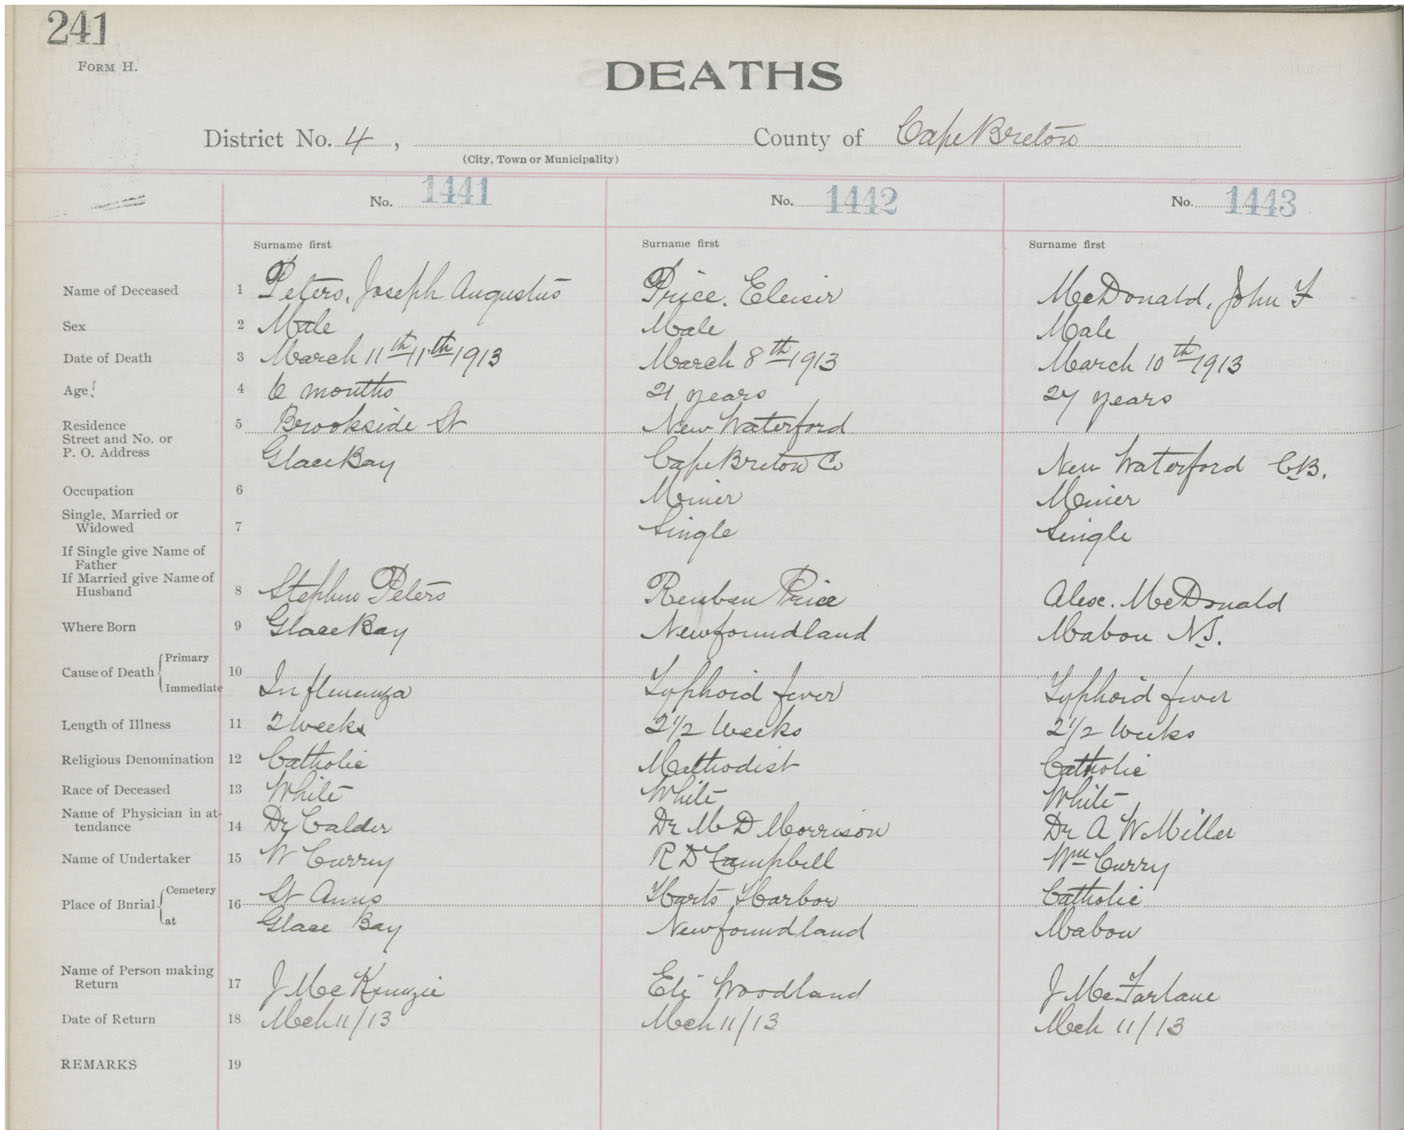 241
FORM H.
DEATHS
District No. 4, County of Cape Breton
(City, Town or Municipality)
No. 1441 No. 1442 No. 1443
Surname first Surname first Surname first
Name of Deceased 1 Peters, Joseph Augustus Price, Eleiser McDonald, John F
Sex 2 Male Male Male
Date of Death 3 March 11th 11th 1913 March 8th 1913 March 10th 1913
Age 4 6 months 21 years 27 years
Residence 5 Brookside St New Waterford
Street and No. or
P. O. Address Glace Bay Cape Breton Co New Waterford C.B.
Occupation 6 Miner Miner
Single, Married or
Widowed 7 Single Single
If Single give Name of
Father
If Married give Name of
Husband 8 Stephen Peters Reuben Price Alex. McDonald
Where Born 9 Glace Bay Newfoundland Mabou N.S.
Cause of Death Primary 10
Immediate Influenza Typhoid fever Typhoid fever
Length of Illness 11 2 weeks 2 1/2 Weeks 2 1/2 Weeks
Religious Denomination 12 Catholic Methodist Catholic
Race of Deceased 13 White White White
Name of Physician in at-
tendance 14 Dr Calder Dr M D Morrison Dr A W Miller
Name of Undertaker 15 W Curry R D Campbell Wm Curry
Place of Burial Cemetery 16 St Anns Harts Harbor Catholic
at Glace Bay Newfoundland Mabou
Name of Person making
Return 17 J McKenzie Eli Woodland J McFarlane
Date of Return 18 Mch 11/13 Mch 11/13 Mch 11/13
REMARKS 19